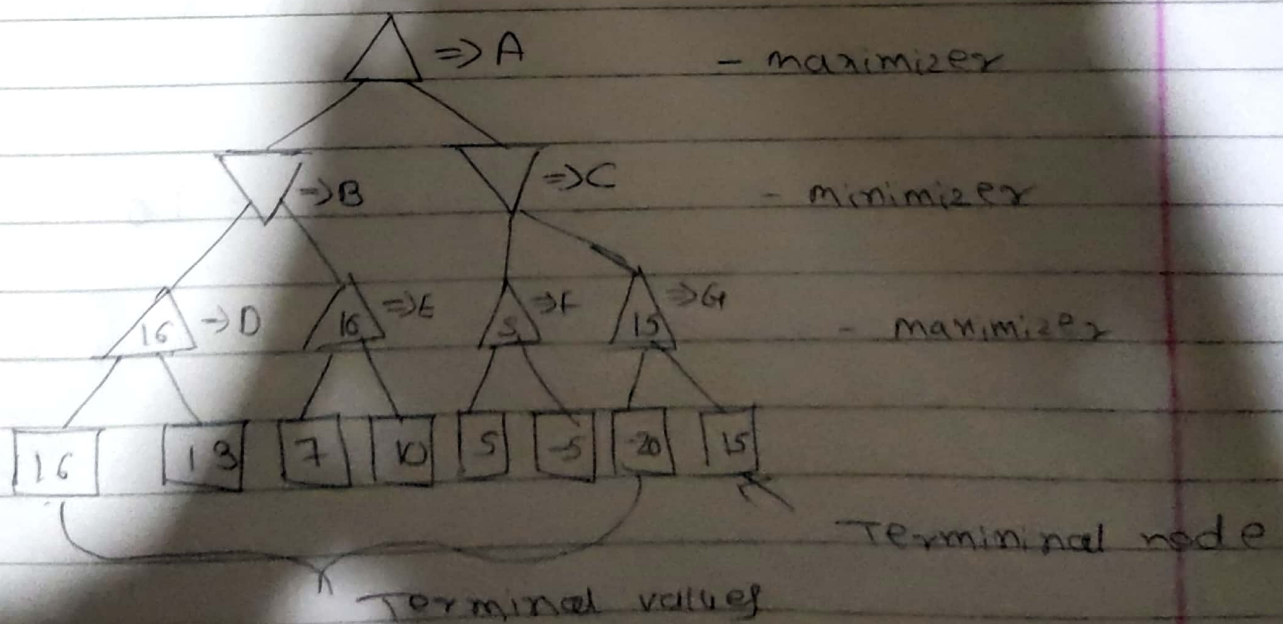 => A - maximizer
-> B => C - minimizer
16 -> D 16 => E 5 => F 15 => G - maximizer
16 13 7 10 5 -5 -20 15
Termininal node
Terminal values